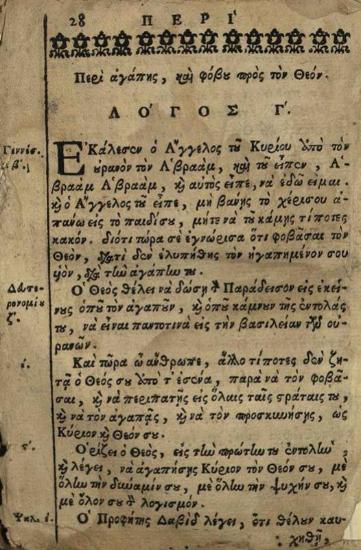 28 ΠΕΡΙ'
Περὶ ἀγάπης, καὶ φόβου πρὸς τὸν Θεόν.
ΛΟ'ΓΟΣ Γ'.
Γεννέσ.
κβ'.
ΕΚάλεσεν ὁ Α῎γγελος τοῦ Κυρίου ἀπὸ τὸν
οὐρανὸν τὸν Α'βραὰμ, καὶ τοῦ εἶπεν, Α'-
βραὰμ Α'βραὰμ, καὶ αὐτὸς εἶπε, νὰ ἐδῶ εἶμαι.
καὶ ὁ Α῎γγελος τοῦ εἶπε, μὴ βάνῃς τὸ χέρι σου ἀ-
πάνω εἰς τὸ παιδί σου, μήτε νὰ τοῦ κάμῃς τίποτες
κακόν. διότι τώρα σὲ ἐγνώρισα ὅτι φοβᾶσαι τὸν
Θεόν, διατὶ δὲν ἐλυπήθης τὸν ἠγαπημένον σου
υἱὸν, διὰ τὴν ἀγάπην του.
Δευτε-
ρονομίου
ζ'.
Ο' Θεὸς θέλει νὰ δώσῃ τὸν Παράδεισον εἰς ἐκεί-
νους ὁποῦ τὸν ἀγαποῦν, καὶ ὁποῦ κάμνουν τὰς ἐντολάς
του, νὰ εἶναι παντοτινὰ εἰς τὴν βασιλείαν τῶν οὐ-
ρανῶν.
ι'.
Καὶ τώρα ὦ ἄνθρωπε, ἄλλο τίποτες δὲν ζη-
τᾷ ὁ Θεός σου ἀπὸ τ' ἐσένα, παρὰ νὰ τὸν φοβᾶ-
σαι, καὶ νὰ περιπατῇς εἰς ὅλαις ταῖς στράταις του,
καὶ νὰ τὸν ἀγαπᾷς, καὶ νὰ τὸν προσκυνήσῃς, ὡς
Κύριον καὶ Θεόν σου.
ς'.
Ο'ρίζει ὁ Θεὸς, εἰς τὴν πρώτην του ἐντολὴν,
καὶ λέγει, νὰ ἀγαπήσῃς Κύριον τὸν Θεόν σου, μὲ
ὅλην τὴν δύναμίν σου, μὲ ὅλην τὴν ψυχήν σου, καὶ
μὲ ὅλον σου τὸν λογισμόν.
Ψαλ. ε'.
Ο' Προφήτης Δαβὶδ λέγει, ὅτι θέλουν καυ-
χηθῆ,